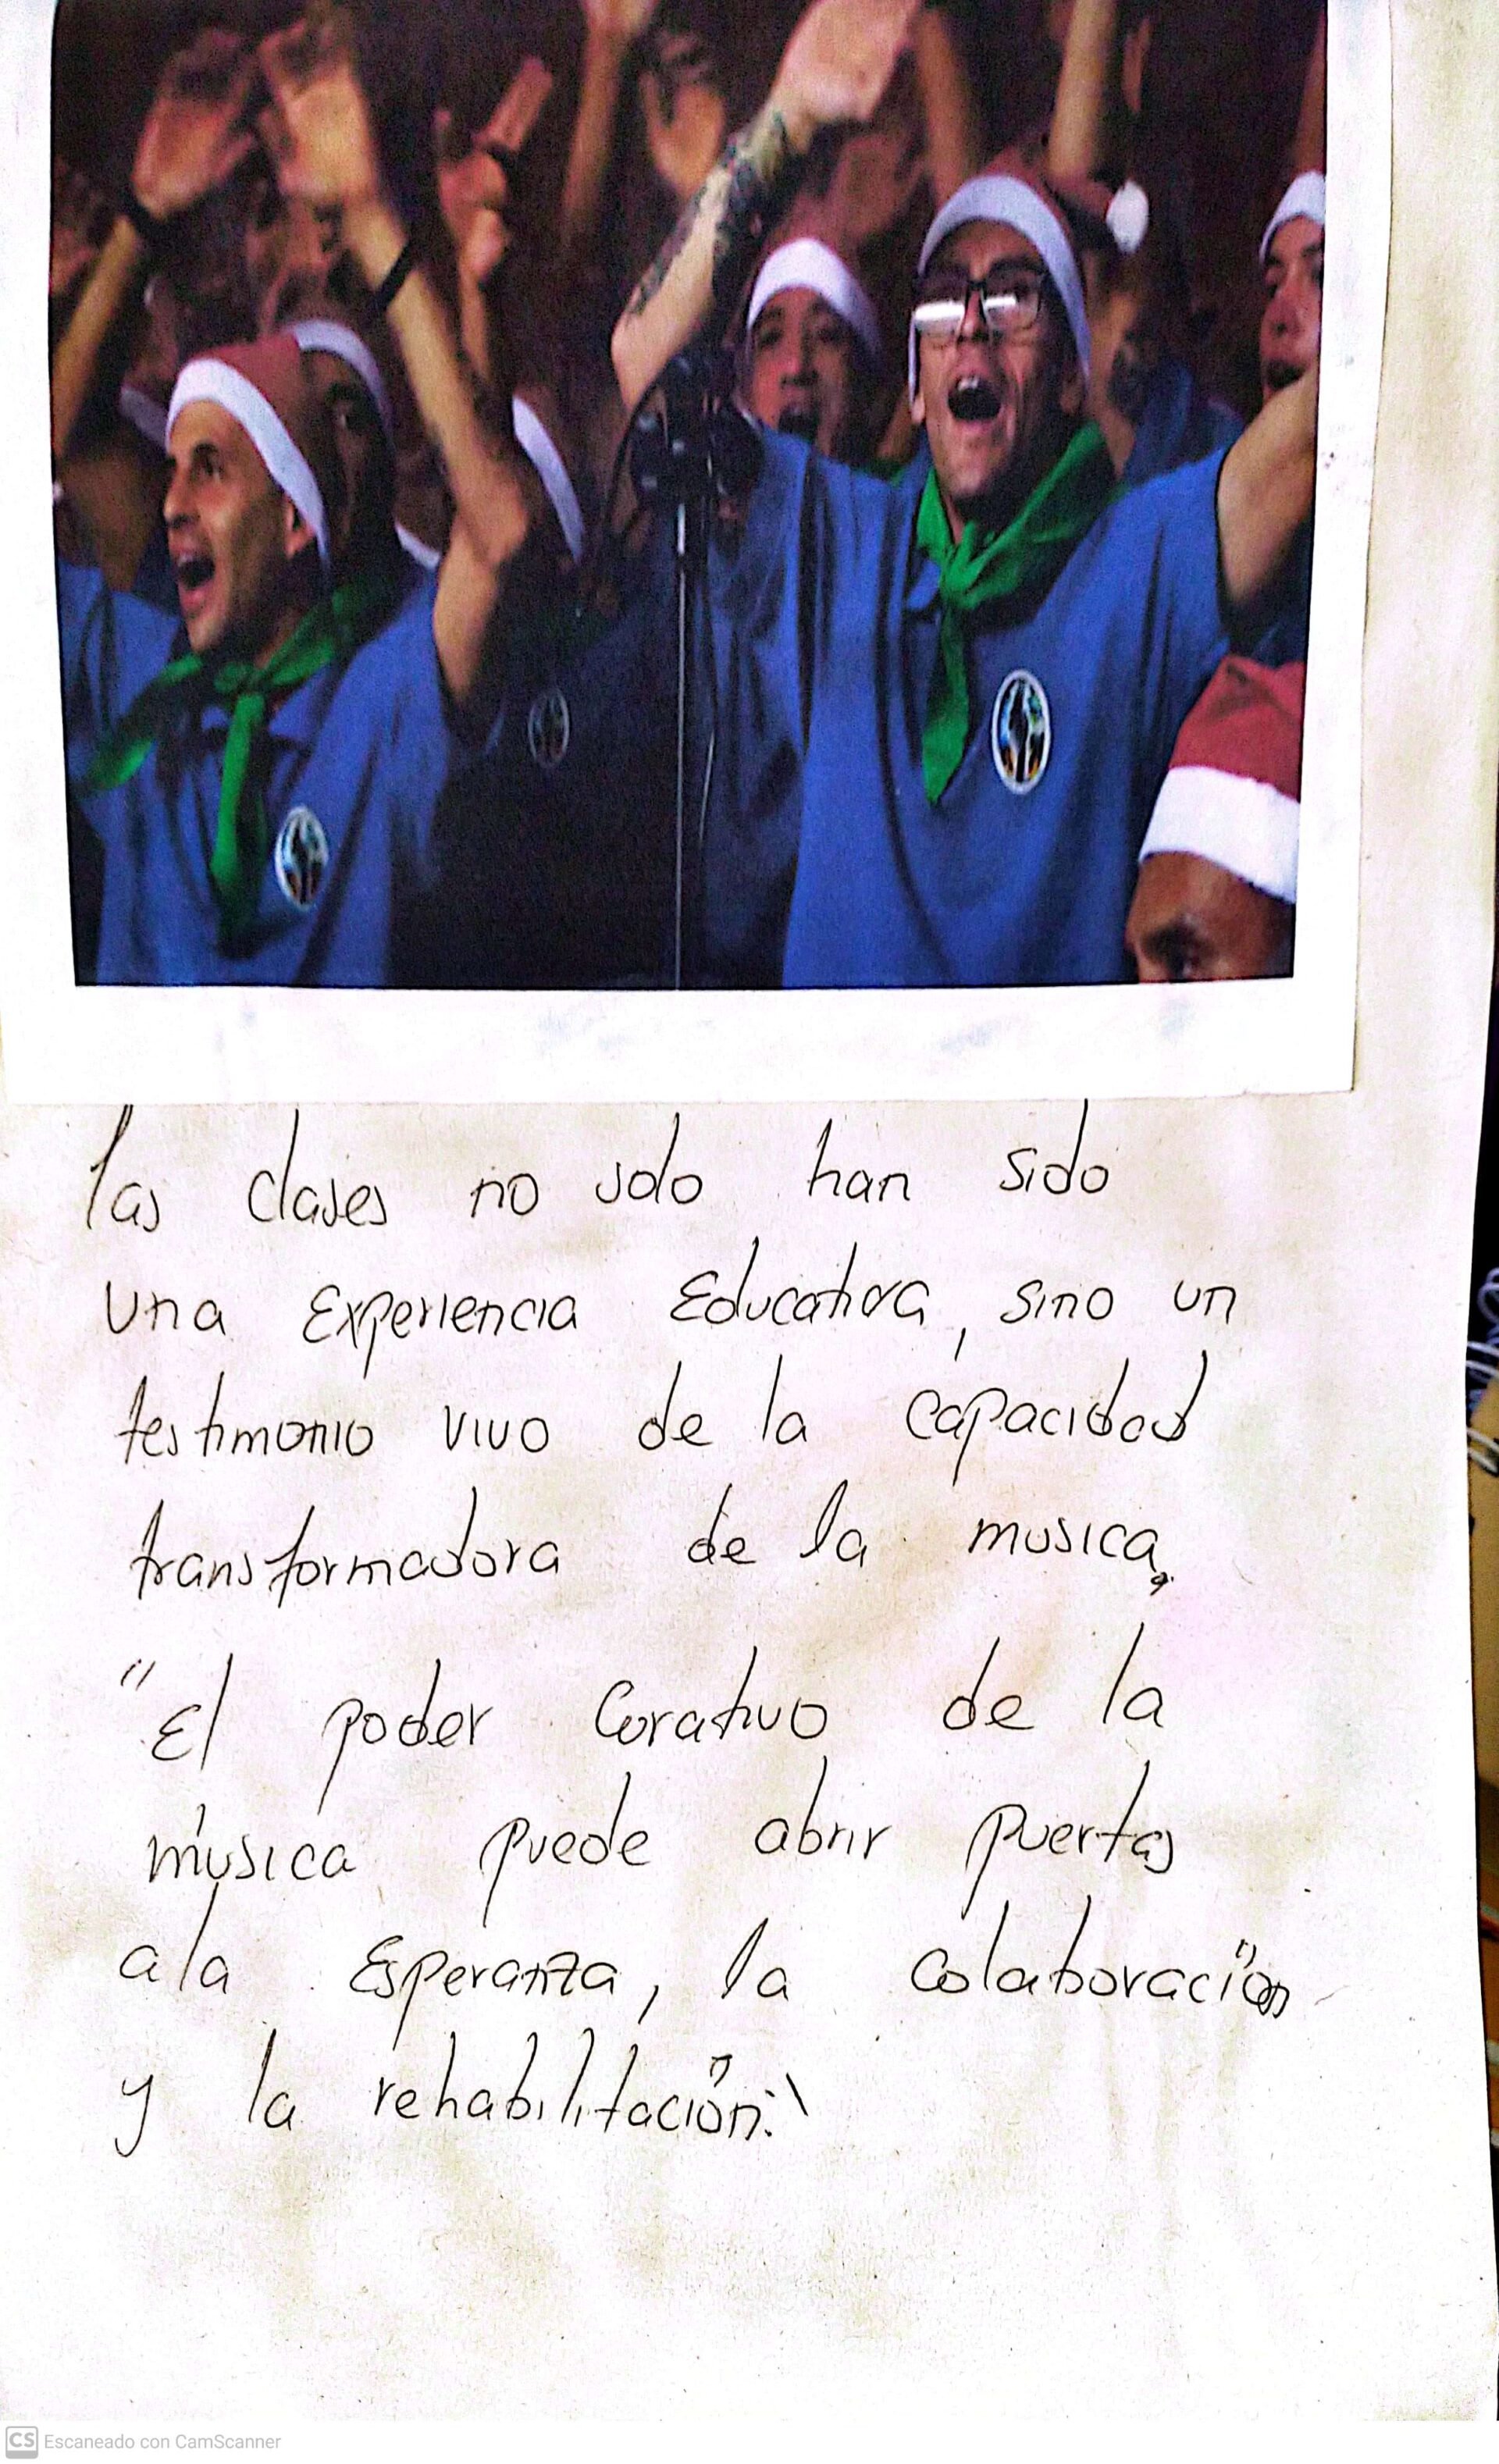 las clases no solo han sido
una Experiencia Educativa, sino un
testimonio vivo de la capacidad
transformadora de la musica.
"El poder Curativo de la
música puede abrir puertas
a la Esperanza, la colaboración
y la rehabilitación."
CS Escaneado con CamScanner